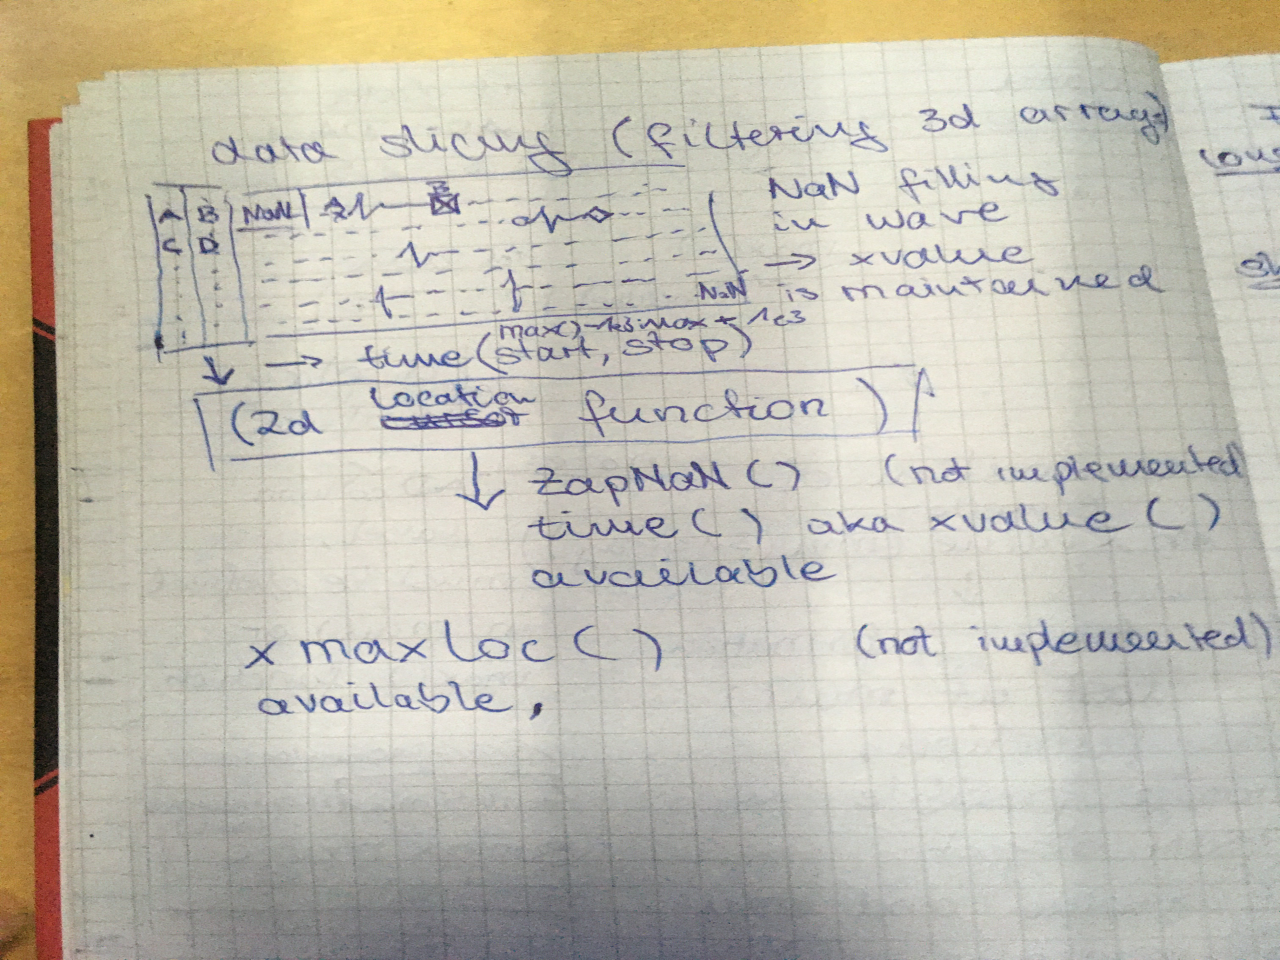 data slicing (filtering 3d arrays)
A B NaN
C D
NaN
NaN filling
in wave
→ xvalue
is maintained
max()-1e3 max + 1e3
→ time(start, stop)
(2d location function)
↓ ZapNaN() (not implemented
time() aka xvalue()
available
xmaxloc() (not implemented)
available,